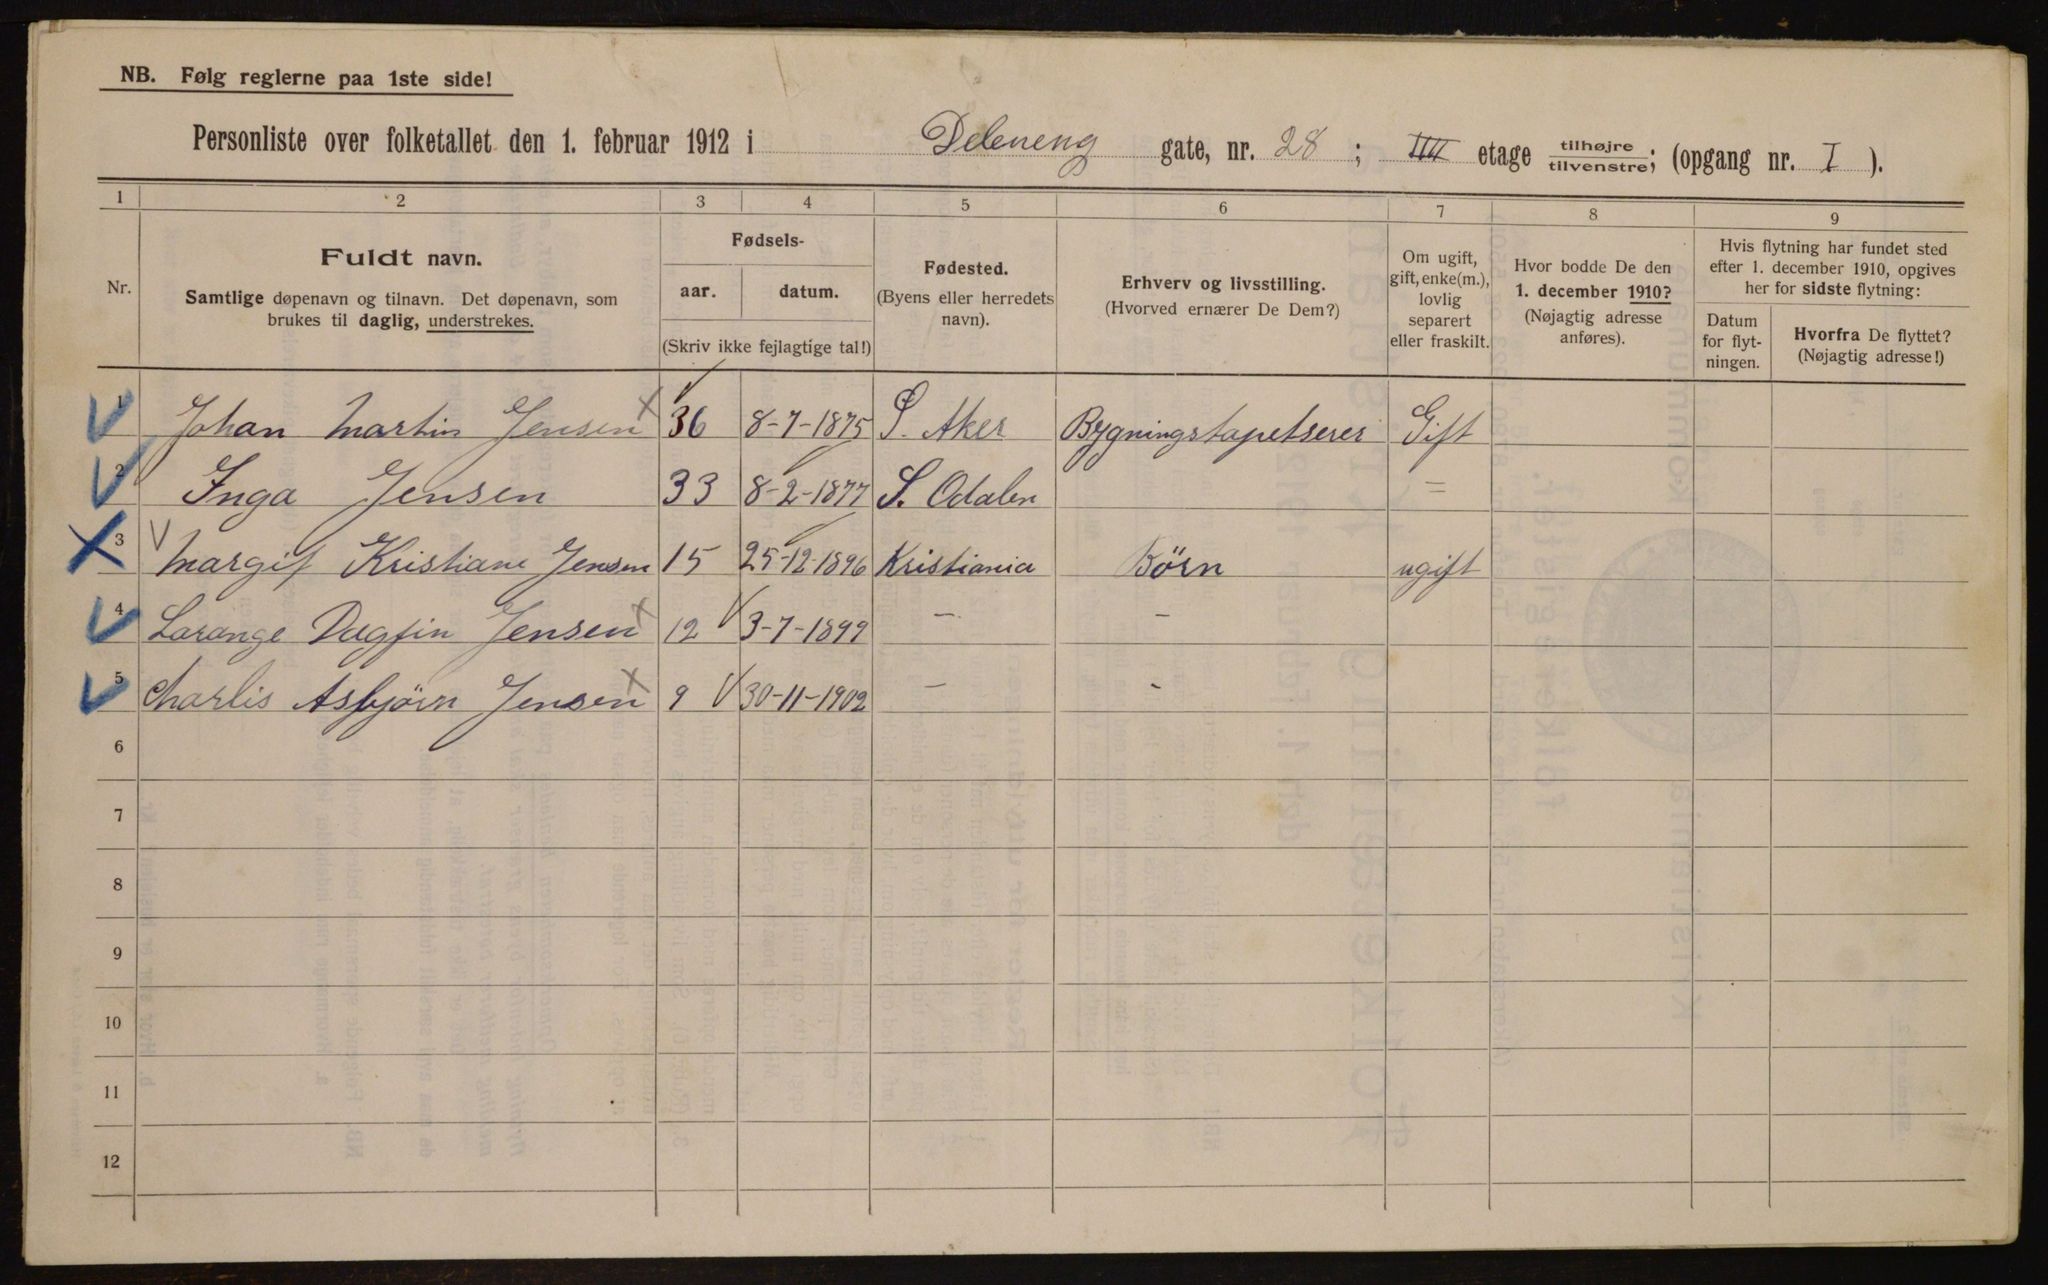 NB. Følg reglerne paa 1ste side!
Personliste over folketallet den 1. februar 1912 i Deleneng gate, nr. 28; IIII etage tilhøjre/tilvenstre; (opgang nr. I).
1 2 3 4 5 6 7 8 9
Nr.
Fuldt navn.
Samtlige døpenavn og tilnavn. Det døpenavn, som
brukes til daglig, understrekes.
Fødsels-
aar. datum.
(Skriv ikke fejlagtige tal!)
Fødested.
(Byens eller herredets
navn).
Erhverv og livsstilling.
(Hvorved ernærer De Dem?)
Om ugift,
gift, enke(m.),
lovlig
separert
eller fraskilt.
Hvor bodde De den
1. december 1910?
(Nøjagtig adresse
anføres).
Hvis flytning har fundet sted
efter 1. december 1910, opgives
her for sidste flytning:
Datum
for flyt-
ningen.
Hvorfra De flyttet?
(Nøjagtig adresse!)
1 Johan Martin Jensen 36 8-7-1875 Aker Bygningstapetserer Gift
2 Inga Jensen 33 8-2-1877 S. Odalen =
3 Margit Kristiane Jensen 15 25-12-1896 Kristiania Börn ugift
4 Lorange Dagfin Jensen 12 3-7-1899 – –
5 Charlis Asbjörn Jensen 9 30-11-1902 – -
6
7
8
9
10
11
12